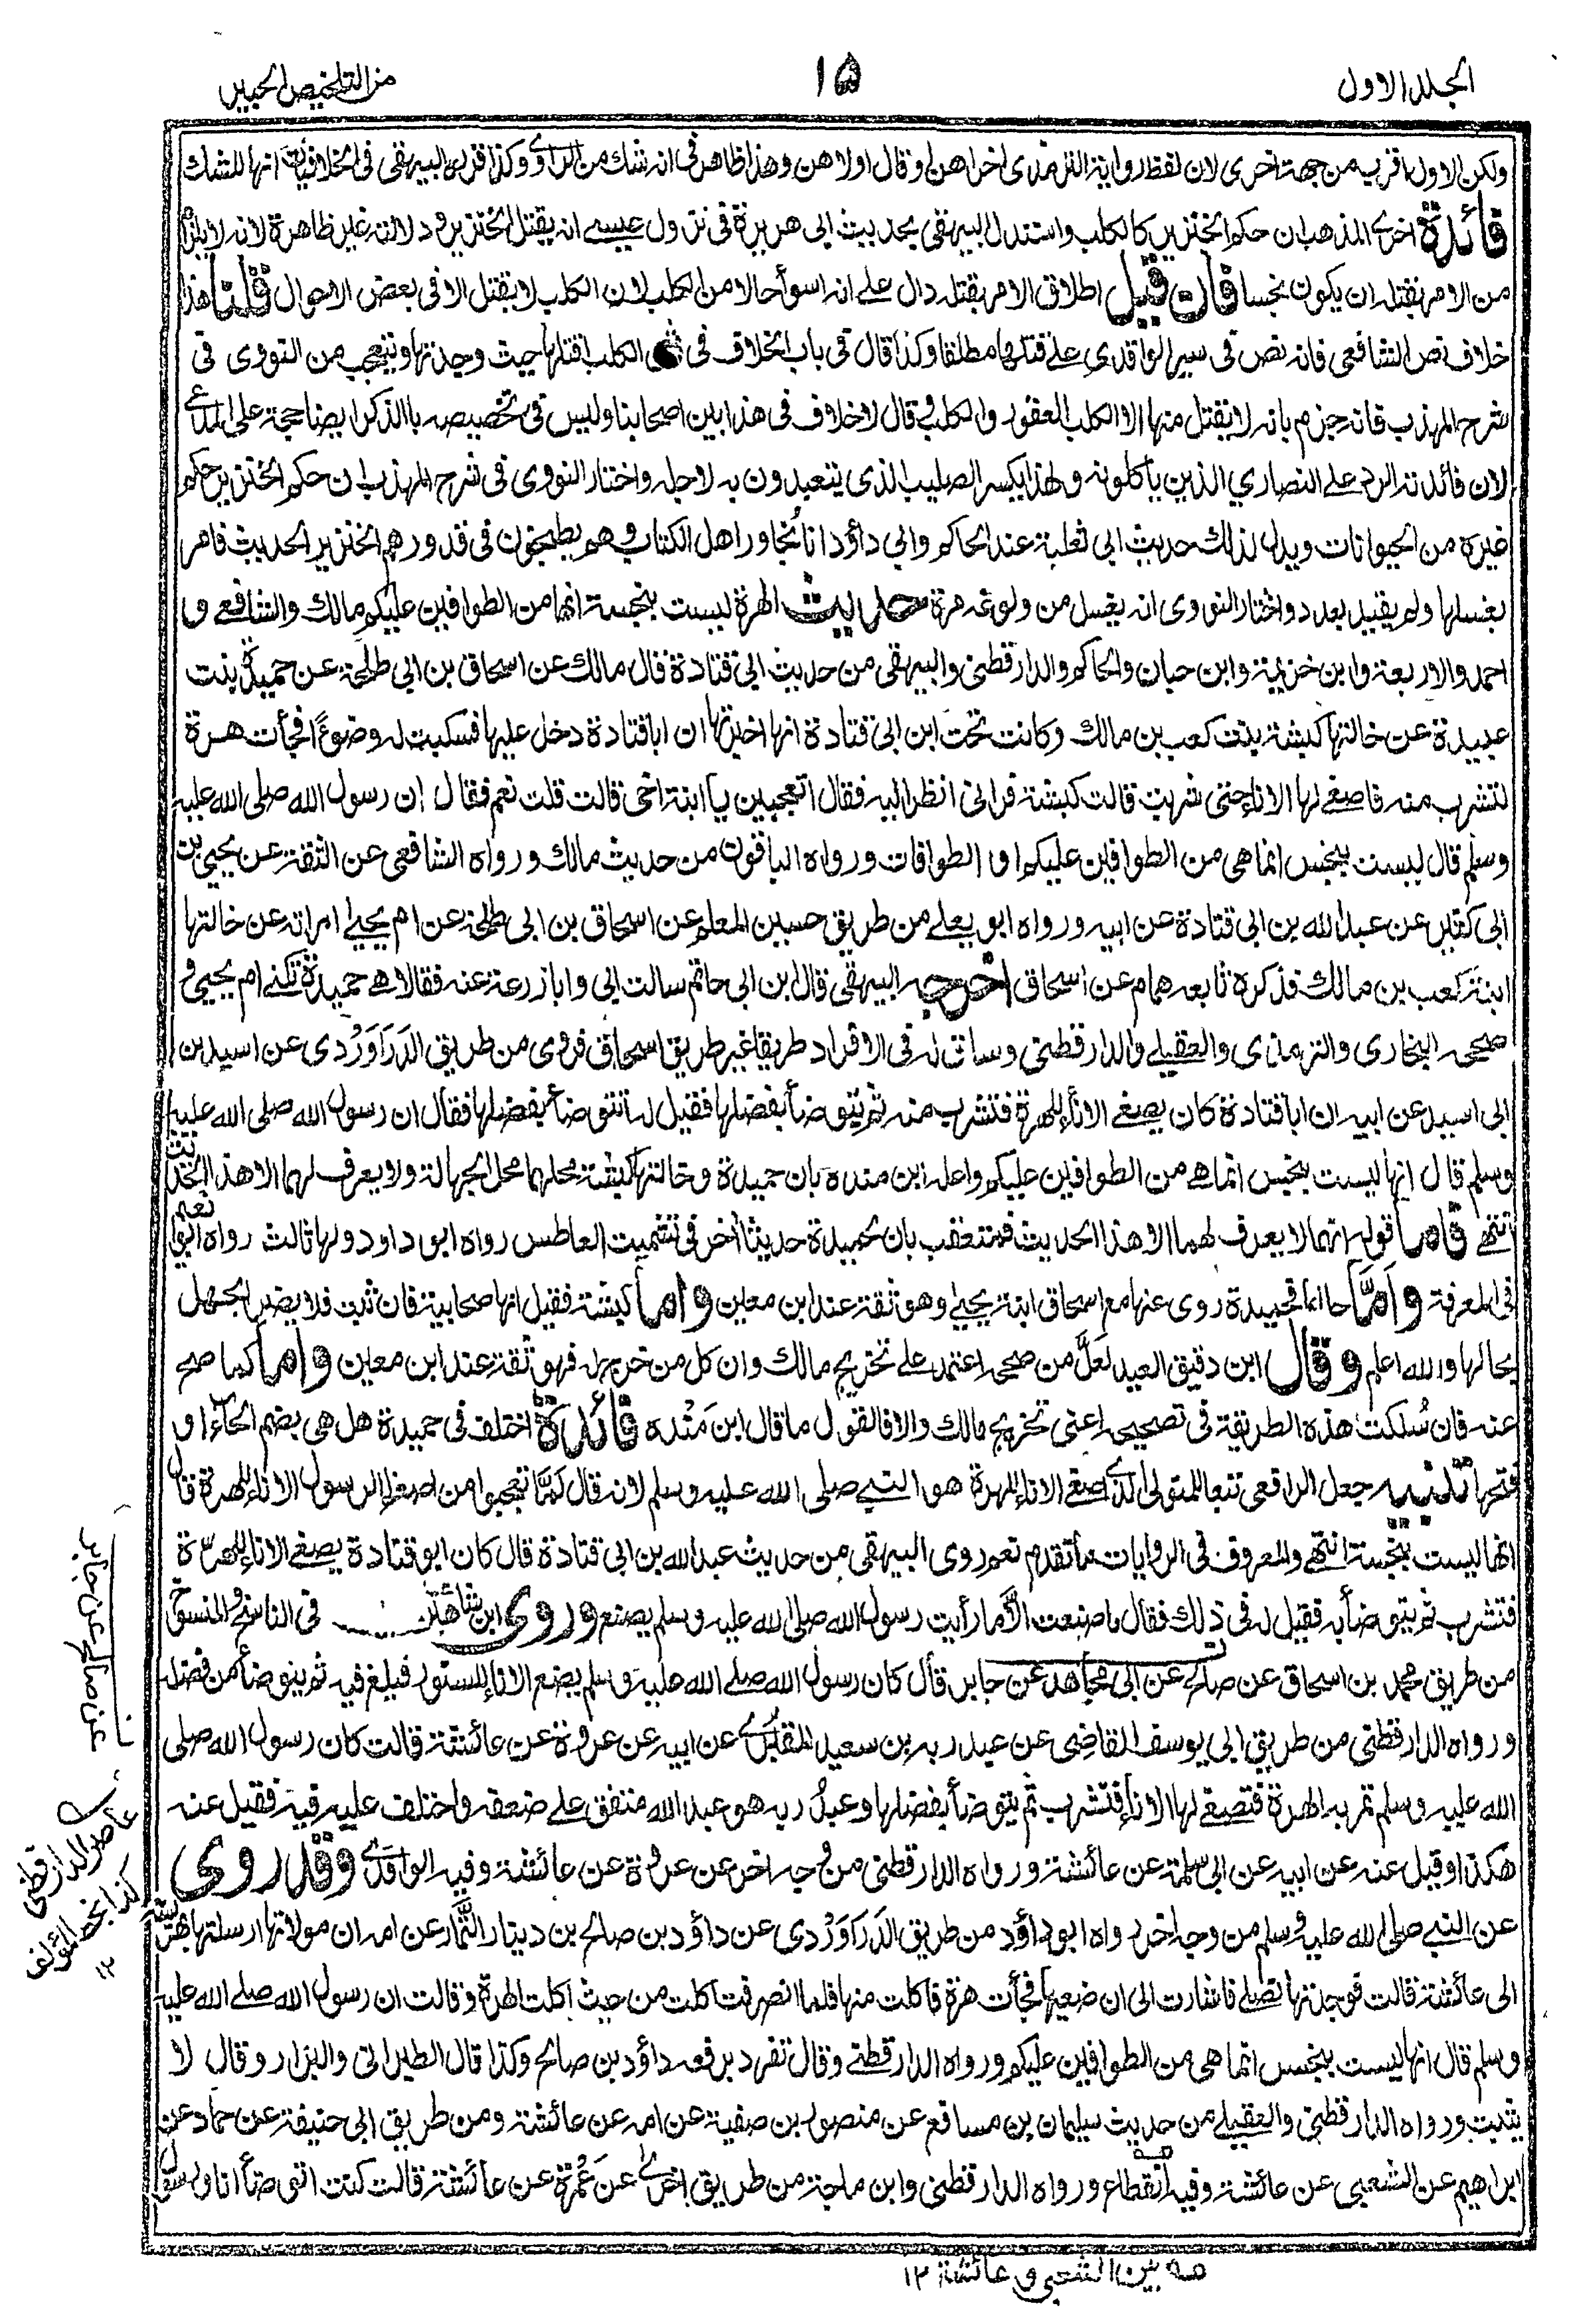 الجلد الاول
١۵
من التلخيص الحبير
ولكن الاول اقرب من جهة اخرى لان لفظ رواية الترمذى اخراهن او قال اولاهن وهذا ظاهر فى انه شك من الراوى وكذا قرره البيهقى فى الخلافيات انها للشك
فائدة اخرى المذهب ان حكم الخنزير كالكلب واستدل البيهقى بحديث ابى هريرة فى نزول عيسے انه يقتل الخنزير و دلالته غير ظاهرة لانه لا يلزم
من الامر بقتله ان يكون نجسا فان قيل اطلاق الامر بقتله دال علے انه اسوأ حالا من الكلب لان الكلب لا يقتل الا فى بعض الاحوال قلنا هذا
خلاف نص الشافعى فانه نص فى سير الواقدى علے قتلها مطلقا وكذا قال فى باب الخلاف فى الكلب اقتلها حيث وجدتها وتعجب من النووى فى
شرح المهذب فانه جزم بانه لا يقتل منها الا الكلب العقور والكلب و قال لا خلاف فى هذا بين اصحابنا وليس فى تخصيصه باالذكر ايضا حجة على المدعے
لان فائدته الرد علے النصاري الذين ياكلونه ولهذا يكسر الصليب الذى يتعبدون به لاجله واختار النووى فى شرح المهذب ان حكم الخنزير حكم
غيره من الحيوانات ويدل لذلك حديث ابى ثعلبة عند الحاكم وابي داؤد انا نُجاور اهل الكتاب وهم يطبخون فى قدورهم الخنزير الحديث فامر
بغسلها ولم يقيد بعدد واختار النووى انه يغسل من ولوغه مرة حديث الهرة ليست بنجسة انها من الطوافين عليكم مالك والشافعے و
احمد والاربعة وابن خزيمة وابن حبان والحاكم والدارقطنى والبيهقى من حديث ابى قتادة قال مالك عن اسحاق بن ابى طلحة عن حميدة بنت
عبيدة عن خالتها كبشة بنت كعب بن مالك وكانت تحت ابن ابى قتادة انها اخبرتها ان اباقتادة دخل عليها فسكبت له وضوءًا فجأت هرة
لتشرب منه فاصغے لها الاناء حتى شربت قالت كبشة فرانى انظر اليه فقال اتعجبين يا ابنة اخى قالت قلت نعم فقال ان رسول الله صلى الله عليه
وسلم قال ليست بنجس انما هى من الطوافين عليكم او الطوافات ورواه الباقون من حديث مالك ورواه الشافعى عن الثقة عن يحيى بن
ابى كثير عن عبدالله بن ابى قتادة عن ابيه ورواه ابو يعلے من طريق حسين المعلم عن اسحاق بن ابى طلحة عن ام يحيے امراته عن خالتها
ابنة كعب بن مالك فذكره تابعه همام عن اسحاق اخرجه البيهقى قال ابن ابى حاتم سالت ابى و ابازرعة عنه فقالا هے حميدة تكنے ام يحيى و
صححه البخارى والترمذى والعقيلے والدارقطنى وساق له فى الافراد طريقا غير طريق اسحاق فروى من طريق الدَرَاوَرْدى عن اسيد بن
ابى اسيد عن ابيه ان اباقتادة كان يصغے الاناء للهرة فتشرب منه ثم يتوضأ بفضلها فقيل له اتتوضأ بفضلها فقال ان رسول الله صلى الله عليه
وسلم قال انها ليست بنجس انما هے من الطوافين عليكم واعله ابن منده بان حميدة وخالتها كبشة محلهما محل الجهالة ولا يعرف لهما الا هذا الحديث
انتهے فاما قوله انهما لا يعرف لهما الا هذا الحديث فمتعقب بان لحميدة حديثا اخر فى تشميت العاطس رواه ابو داود ولها ثالث رواه ابو نعيم
فى المعرفة وامّا حالها فحميدة روى عنها مع اسحاق ابنه يحيے وهو ثقة عند ابن معين واما كبشة فقيل انها صحابية فان ثبت فلا يضر الجهل
بحالها والله اعلم وقال ابن دقيق العيد لعلَّ من صححه اعتمد علے تخريج مالك وان كل من خرج له فهو ثقة عند ابن معين واما كما صح
عنه فان سُلكت هذه الطريقة فى تصحيحه اعنى تخريج مالك والا فالقول ما قال ابن مَنْده فائدة اختلف فى حميدة هل هى بضم الحآء او
فتحها تنبيه جعل الرافعى تبعا للمتولى الذى اصغے الاناء للهرة هو النبے صلى الله عليه وسلم لانه قال لمَّا تعجبوا من اصغاء الرسول الاناء للهرة قال
انها ليست بنجسة انتهے والمعروف فى الروايات ما تقدم نعم روى البيهقى من حديث عبدالله بن ابى قتادة قال كان ابو قتادة يصغے الاناء للهرّة
فتشرب ثم يتوضأ به فقيل له فى ذلك فقال ما صنعت الاّ ما رأيت رسول الله صلى الله عليه وسلم يصنع وروى ابن شاهين فى الناسخ والمنسوخ
من طريق محمد بن اسحاق عن صالح عن ابى مجاهد عن جابر قال كان رسول الله صلے الله عليه وسلم يضع الاناء للسنور فيلغ فيه ثم يتوضأ من فضله
ورواه الدارقطنى من طريق ابى يوسف القاضِى عن عبد ربه بن سعيد المقبُرى عن ابيه عن عروة عن عائشة قالت كان رسول الله صلى
الله عليه وسلم تمر به الهرة فتصغے لها الاناء فتشرب ثم يتوضأ بفضلها وعبدُ ربه هو عبدالله متفق علے ضعفه واختلف عليه فيه فقيل عنه
هكذا وقيل عنه عن ابيه عن ابى سلمة عن عائشة ورواه الدارقطنى من وجه اخر عن عروة عن عائشة وفيه الواقدى وقد روى
عن النبے صلى الله عليه وسلم من وجه اخر رواه ابو داؤد من طريق الدَرَاوَرْدى عن داؤد بن صالح بن دينار التَّمار عن امه ان مولاتها ارسلتها بهريسة
الى عائشة قالت فوجدتها تصلے فاشارت الى ان ضعيها فجأت هرة فاكلت منها فلما انصرفت اكلت من حيث اكلت الهرة وقالت ان رسول الله صلے الله عليه
وسلم قال انها ليست بنجس انما هى من الطوافين عليكم ورواه الدارقطنے وقال تفرد برفعه داؤد بن صالح وكذا قال الطبرانى والبزار وقال لا
يثبت ورواه الدارقطنى والعقيلے من حديث سليمان بن مسافع عن منصور بن صفية عن امه عن عائشة ومن طريق ابى حنيفة عن حماد عن
ابراهيم عن الشعبى عن عائشة وفيه انقطاع ورواه الدارقطنى وابن ماجة من طريق اخرى عن عَمْرَة عن عائشة قالت كنت اتوضأ انا ورسول
عن صالح عن جابر
عاصر الدارقطنى
كذا بخط المؤلف
١٢
مه بين الشعبى و عائشة ١٢